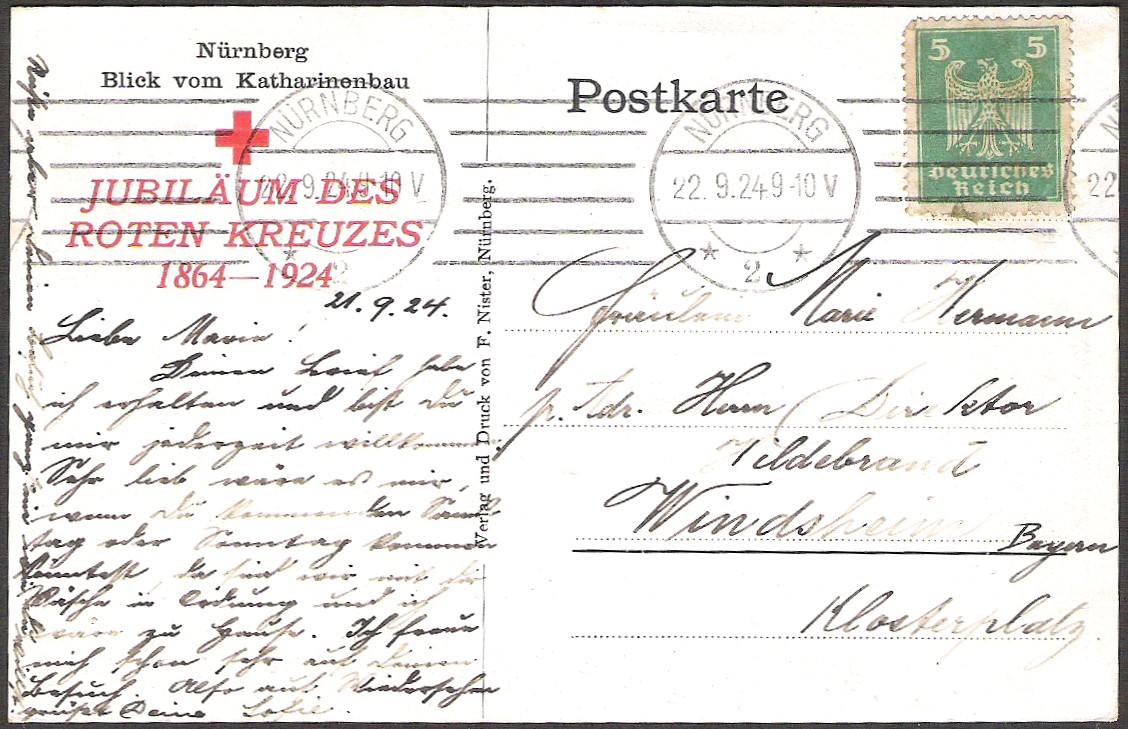 Nürnberg
Blick vom Katharinenbau
JUBILÄUM DES
ROTEN KREUZES
1864—1924
Postkarte
5 5
Deutsches
Reich
NÜRNBERG
22.9.24.9-10V
2
NÜRNBERG
22.9.24.9-10V
2
22
Verlag und Druck von F. Nister, Nürnberg.
21.9.24.
Liebe Marie!
Deinen Brief habe
ich erhalten und bist Du
mir jederzeit willkommen.
Sehr lieb wäre es mir,
wenn Du kommenden Sams
tag oder Sonntag kommen
könntest, da sind wir mit der
Wäsche in Ordnung und ich
wäre zu Hause. Ich freue
mich schon sehr auf Deinen
Besuch. Also auf Wiedersehen
grüßt Deine Sofie.
Fräulein Marie Hermann
p. Adr. Herrn Direktor
Hildebrand
Windsheim Bayern
Klosterplatz